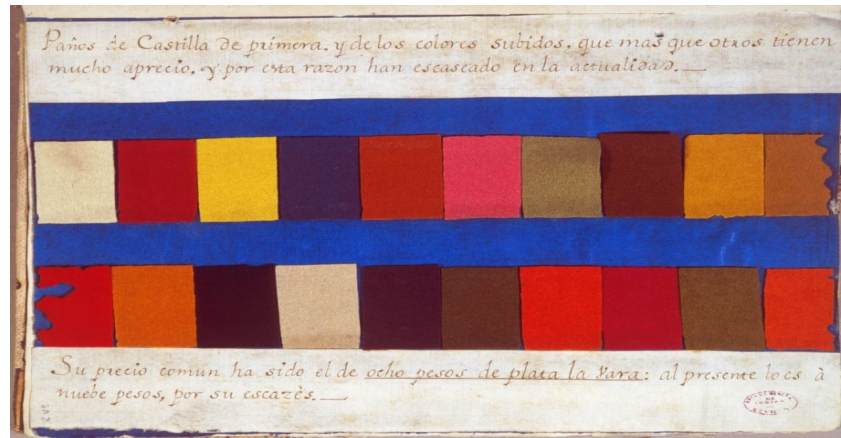 Paños de Castilla de primera, y de los colores subidos, que mas que otros tienen
mucho aprecio, y por esta razon han escaseado en la actualidad.
Su precio comun ha sido el de ocho pesos de plata la Vara: al presente lo es à
nuebe pesos, por su escazès.